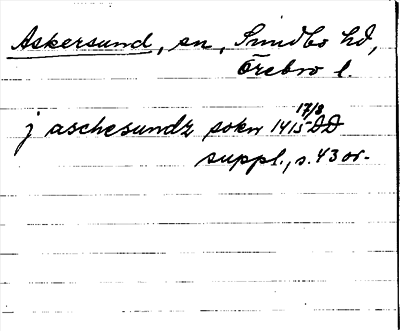 Askersund, sn, Sundbo hd,
Örebro l.
j aschesundz sokn 1415 17/8 DD
suppl., s. 43 or.